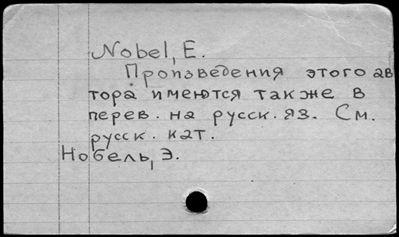 Nobel, E.
Произведения этого ав
тора имеются также в
перев. на русск. яз. См.
русск. кат.
Нобель, Э.